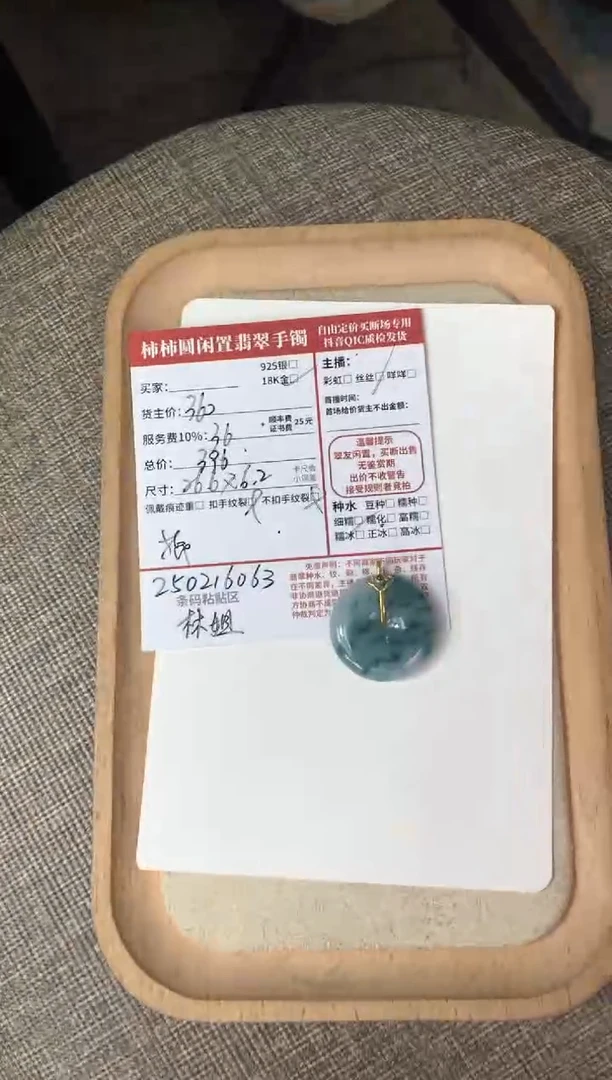 柿柿圓闲置翡翠手镯
自由定价买断场专用
抖音QIC质检发货
925银□
18K金□
买家:
货主价: 360
服务费10%: 36
+ 顺丰费 证书费 25元
总价: 396
尺寸: 26.6×6.2
佩戴痕迹重□ 扣手纹裂□ 不扣手纹裂□
主播:
彩虹□ 丝丝□ 咩咩□
首播时间:
首场给价货主不出金额:
温馨提示
翠友闲置,买断出售
无鉴赏期
出价不收警告
接受规则者竞拍
种水 豆种□ 糯种□
细糯□ 糯化□ 高糯□
糯冰□ 正冰□ 高冰□
250216063
条码粘贴区
林姐